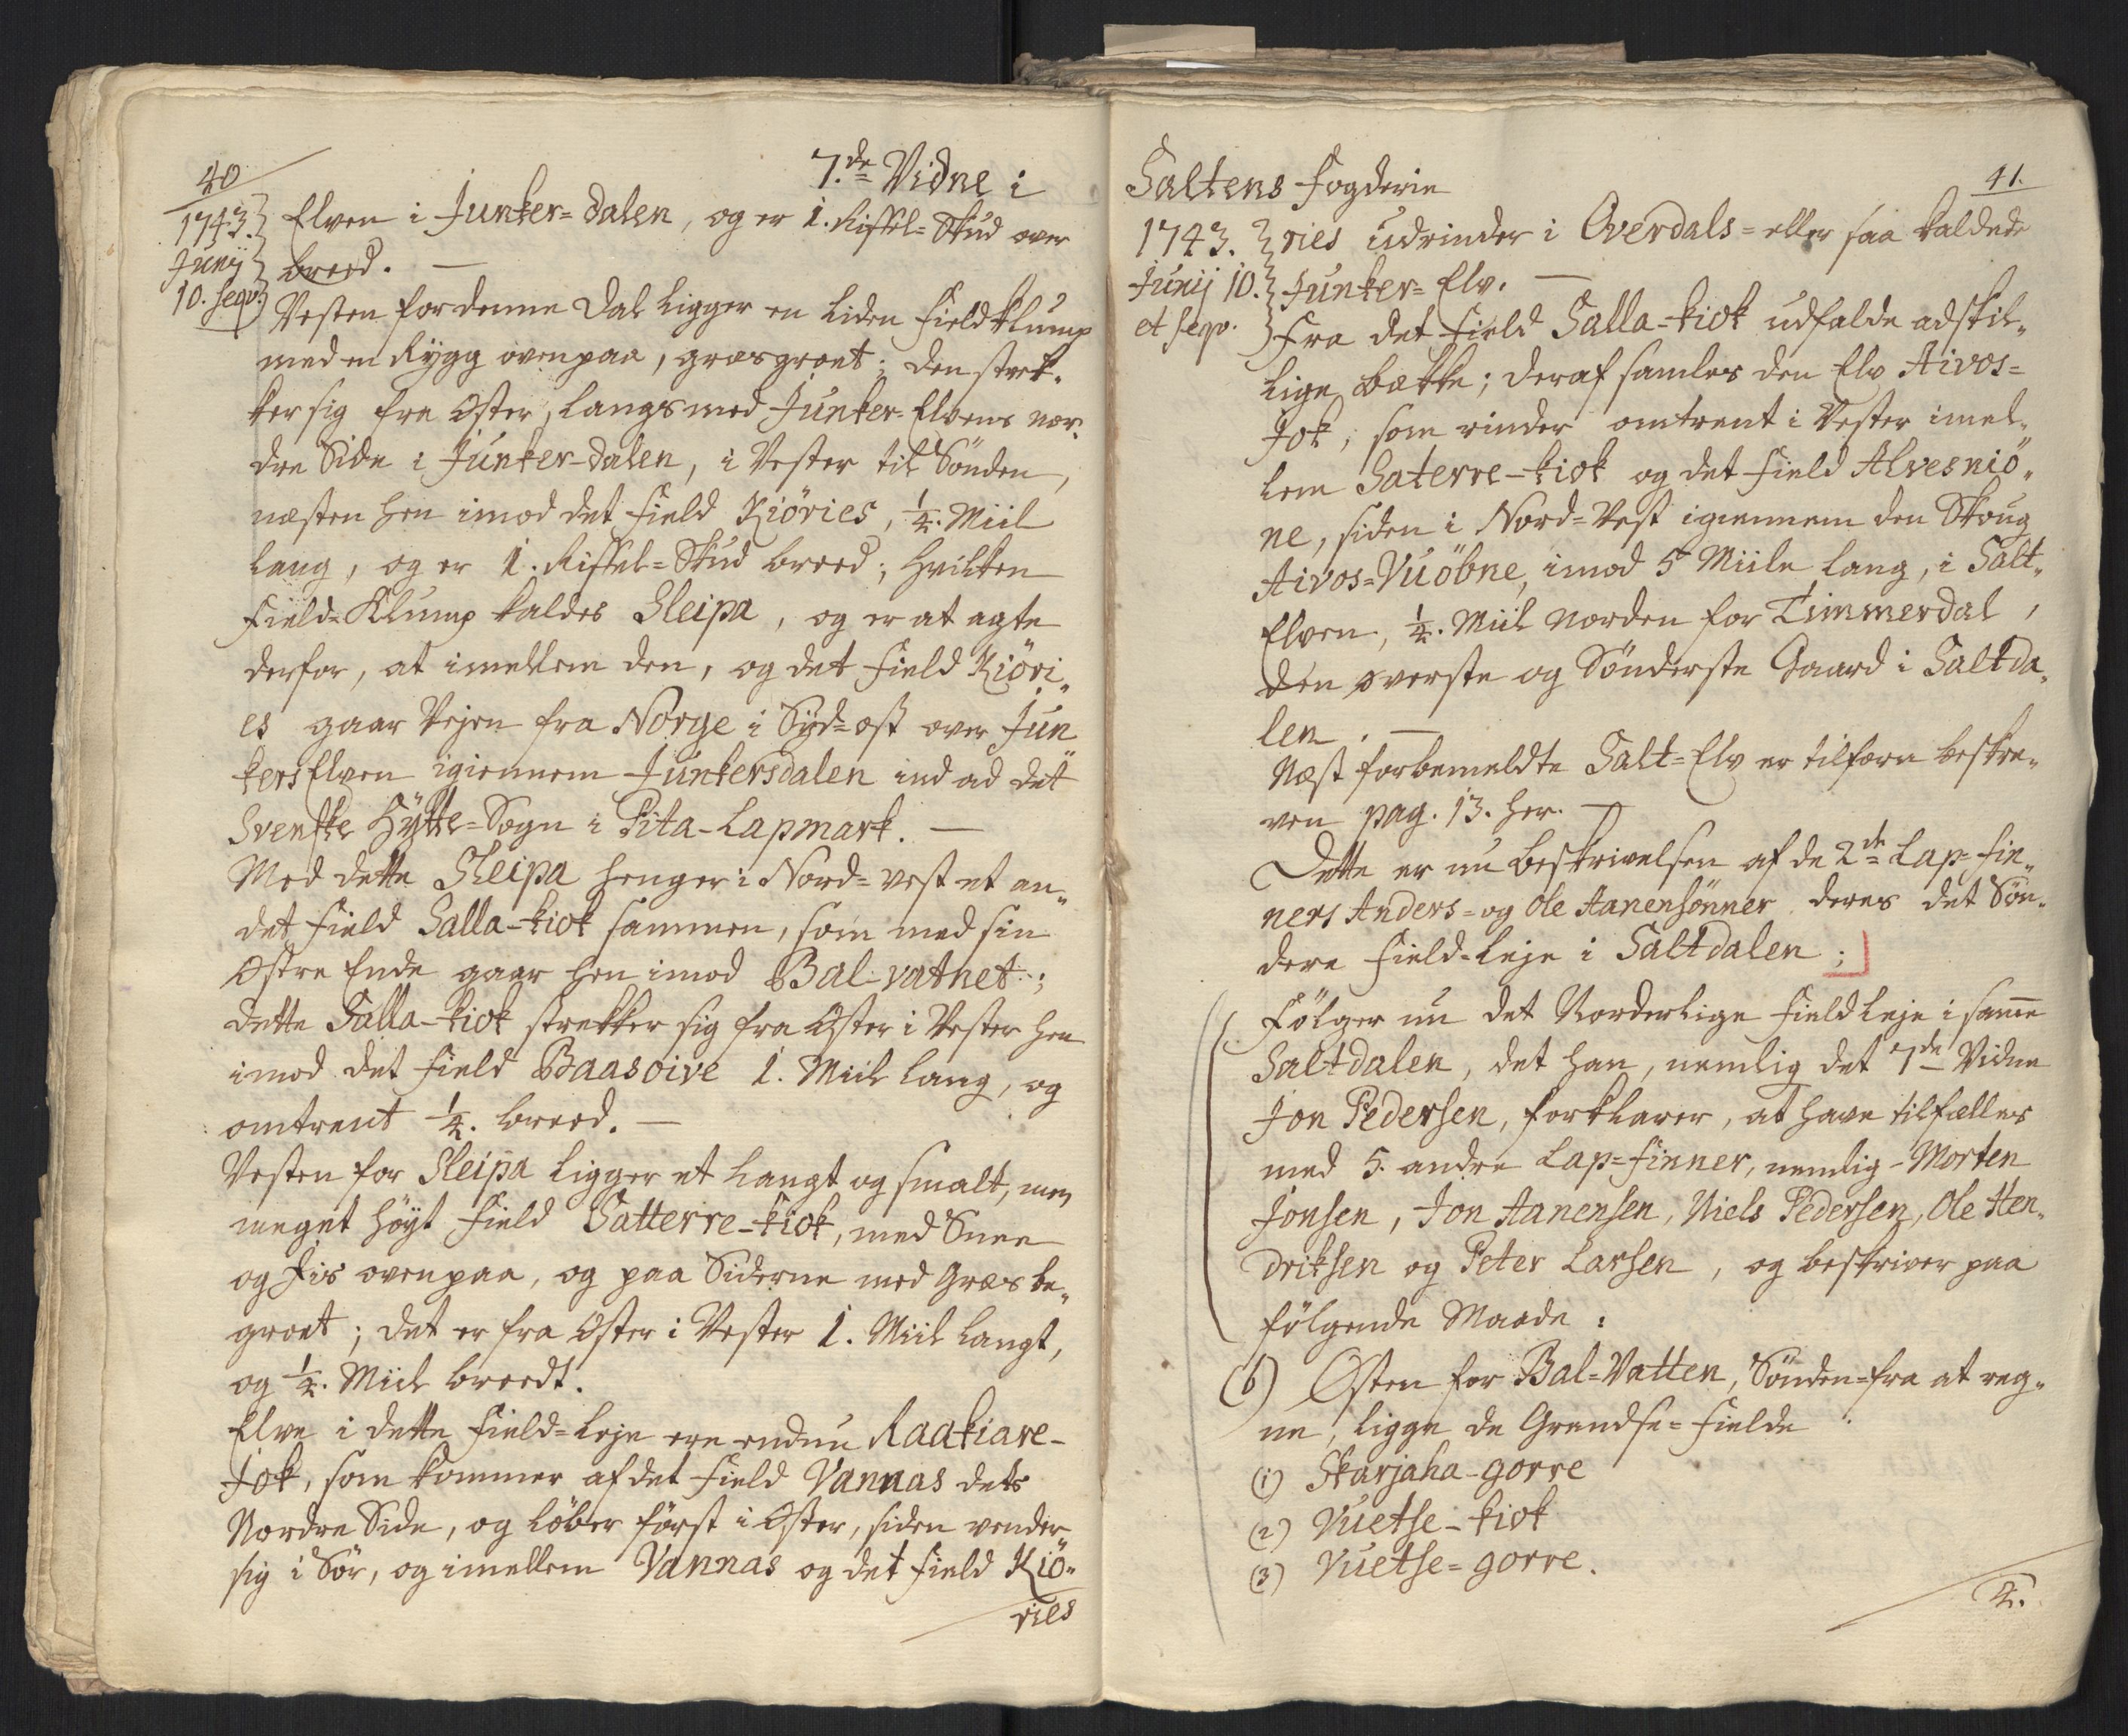 40
7.de Vidne i
1743.
Junij
10. seqv.
Elven i Junker=dalen, og er 1. Riffel=Skud over
breed. —
Vesten for denne Dal ligger en liden Field klump
med en Rygg ovenpaa, græsgroet; den strek„
ker sig fra Øster, langs med Junker=Elvens nor„
dre Side i Junker-dalen, i Vester til Sønden,
næsten hen imod det Field Kiöries, 1/4. Miil
lang, og er 1. Riffel=Skud breed; hvilken
Field=Klump kaldes Sleipa, og er at agte
derfor, at imellem den, og det Field Kiöri„
es gaar Vejen fra Norge i Syd=ost over Jun„
kersElven igiennem Junkersdalen ind ad det
Svenske Hÿtte=Sogn i Pita-Lapmark. —
Med dette Sleipa henger i Nord=vest et an„
det Field Salla-kiok sammen, som med sin
Ostre Ende gaar hen imod Bal-vatnet;
dette Salla-kiok strekker sig fra Øster i Vester hen
imod det Field Baasoive 1. Miil lang, og
omtrent 1/4. breed. —
Vesten for Sleipa ligger et langt og smalt, men
meget höyt Field Satterre-kiok, med Snee
og Jis ovenpaa, og paa Siderne med Græs be„
groet; det er fra Øster i Vester 1. Miil langt,
og 1/4. Miil breedt.
Elve i dette Field=Leje ere endnu Raakiare-
Jok, som kommer af det Field Vannas dets
Nordre Side, og löber först i Øster, siden vender
sig i Sör, og imellem Vannas og det Field Kiö„
ries
Saltens Fogderie
41.
1743.
Junij 10.
et seqv.
ries udrinder i Overdals= eller saa kaldede
Junker=Elv. —
Fra det Field Salla-kiok udfalde adskil„
lige Bække; deraf samles den Elv Aivos=
Jok, som rinder omtrent i Vester imel„
lem Saterre-kiok og det Field Alvesniö„
ne, siden i Nord=Vest igiennem den Skoug
Aivos=Vuöbne, imod 5 Miile lang, i Salt„
Elven, 1/4. Miil norden for Timmerdal,
den øverste og Sønderste Gaard i Saltda„
len. —
Næst forbemeldte Salt=Elv er tilforn beskre„
ven pag. 13. her. —
Dette er nu beskrivelsen af de 2de Lap=Fin„
ners Anders= og Ole Aanensönner deres det Søn„
dere Field=Leje i Saltdalen;
Fölger nu det Norderlige Field Leje i samme
Saltdalen, det han, nemlig det 7de Vidne
Jon Pedersen, forklarer, at have tilfælles
med 5. andre Lap=Finner, nemlig - Morten
Jonsen, Jon Aanensen, Niels Pedersen, Ole Hen„
driksen og Peter Larsen, og beskriver paa
fölgende Maade:
(b) Østen for Bal=Vatten, Sönden=fra at reg„
ne, ligge de Grendse=Fielde
(1) Skarjaha-gorre
(2) Vuetse-kiok
(3) Vuetse=gorre.
4.